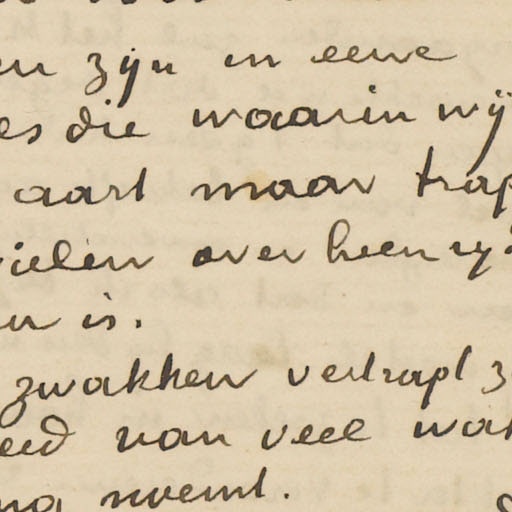 en zijn in eene
es die waarin wij
aart maar trap
wielen over heen rij
en is.
zwakken vertrapt z
eed van veel wat
ng noemt.